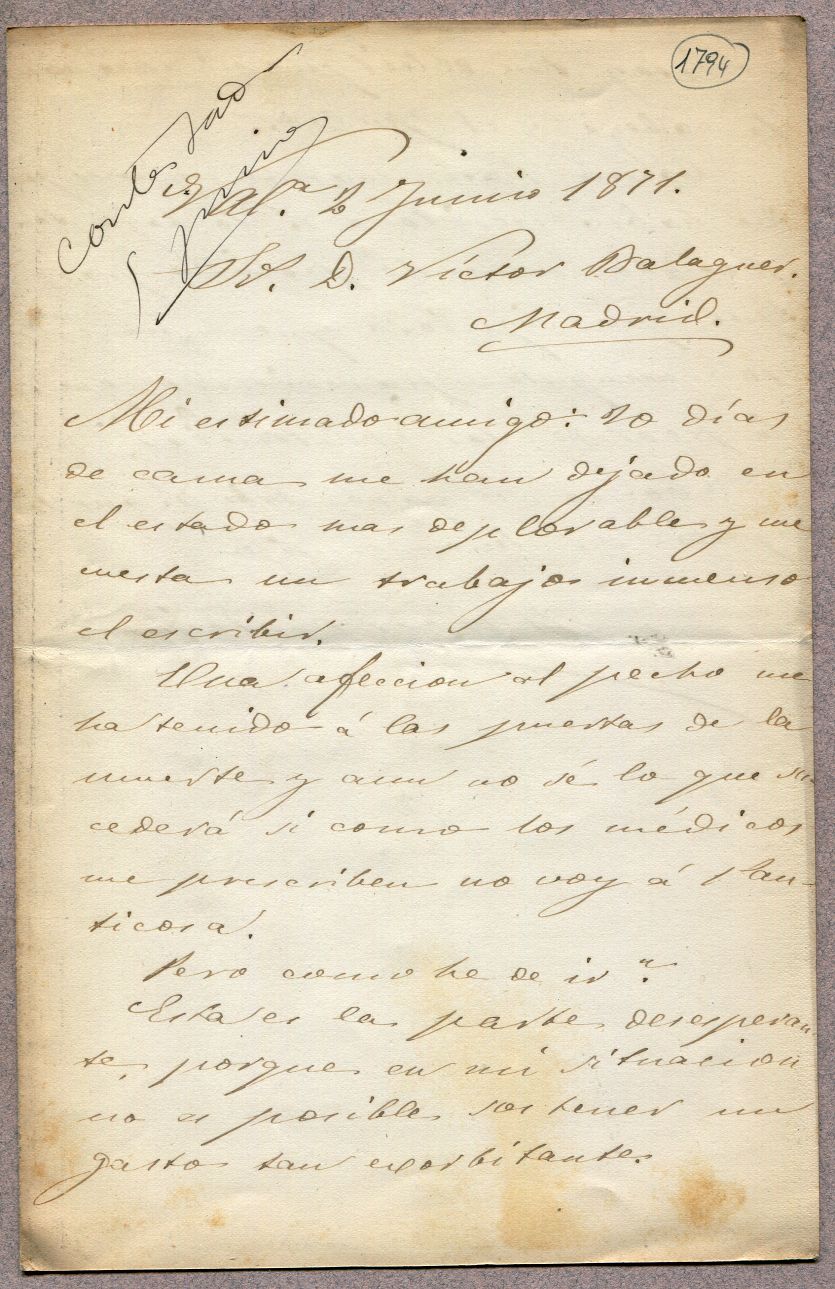 1794
Contestad
5 Junio
Val.ª 2 Junio 1871.
Sr. D. Víctor Balaguer.
Madrid.
Mi estimado amigo: 20 días
de cama me han dejado en
el estado mas deplorable y me
cuesta un trabajo inmenso
el escribir.
Una afeccion al pecho me
ha tenido á las puertas de la
muerte y aun no sé lo que su
cederá si como los médicos
me prescriben no voy á Pan-
ticosa.
Pero como he de ir?
Esta es la parte desesperan
te, porque en mi situacion
no es posible sostener un
gasto tan exorbitante.